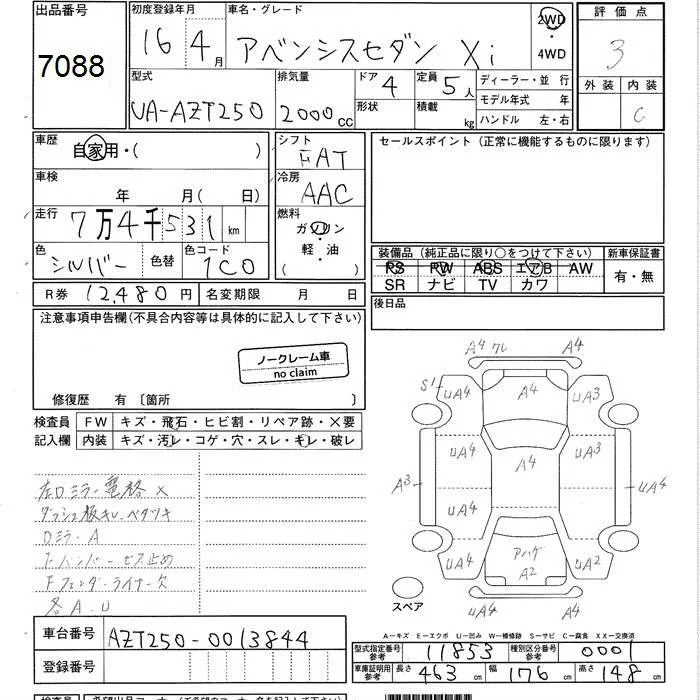 出品番号
7088
初度登録年月
16年4月
車名・グレード
アベンシスセダン Xi
2WD
・
4WD
評価点
3
外装 内装
C
型式
UA-AZT250
排気量
2000cc
ドア
4
形状
定員
5人
積載
kg
ディーラー・並 行
モデル年式 年
ハンドル 左・右
車歴
自家用・( )
車検
年 月(日)
走行
7万4千531km
色
シルバー
色替
色コード
1C0
シフト
FAT
冷房
AAC
燃料
ガソリン
・
軽・油
( )
セールスポイント(正常に機能するものに限ります)
装備品(純正品に限り○をつけて下さい)
PS PW ABS エアB AW
SR ナビ TV カワ
新車保証書
有・無
R券 12,480円
名変期限 月 日
後日品
注意事項申告欄(不具合内容等は具体的に記入して下さい)
ノークレーム車
no claim
修復歴 有〔箇所 〕
検査員
記入欄
FW キズ・飛石・ヒビ割・リペア跡・×要
内装 キズ・汚レ・コゲ・穴・スレ・キレ・破レ
左Dミラー電格×
ダッシュ板キレ・ベタツキ
Dミラー A
F.バンパービス止め
Fフェンダーライナー欠
各A.U
A4 ワレ A4
S1 UA4 A4 UA3
UA4 A4 UA3
A3 UA4 UA4 UA4
UA4 アハゲ A2 UA2
UA4 A4
スペア
A―キズ E―エクボ U―凹み W―補修跡 S―サビ C―腐食 XX―交換済
車台番号
AZT250-0013844
登録番号
型式指定番号
参考
11853
種別区分番号
参考
0001
車庫証明用
参考
長さ 463cm 幅 176cm 高さ 148cm